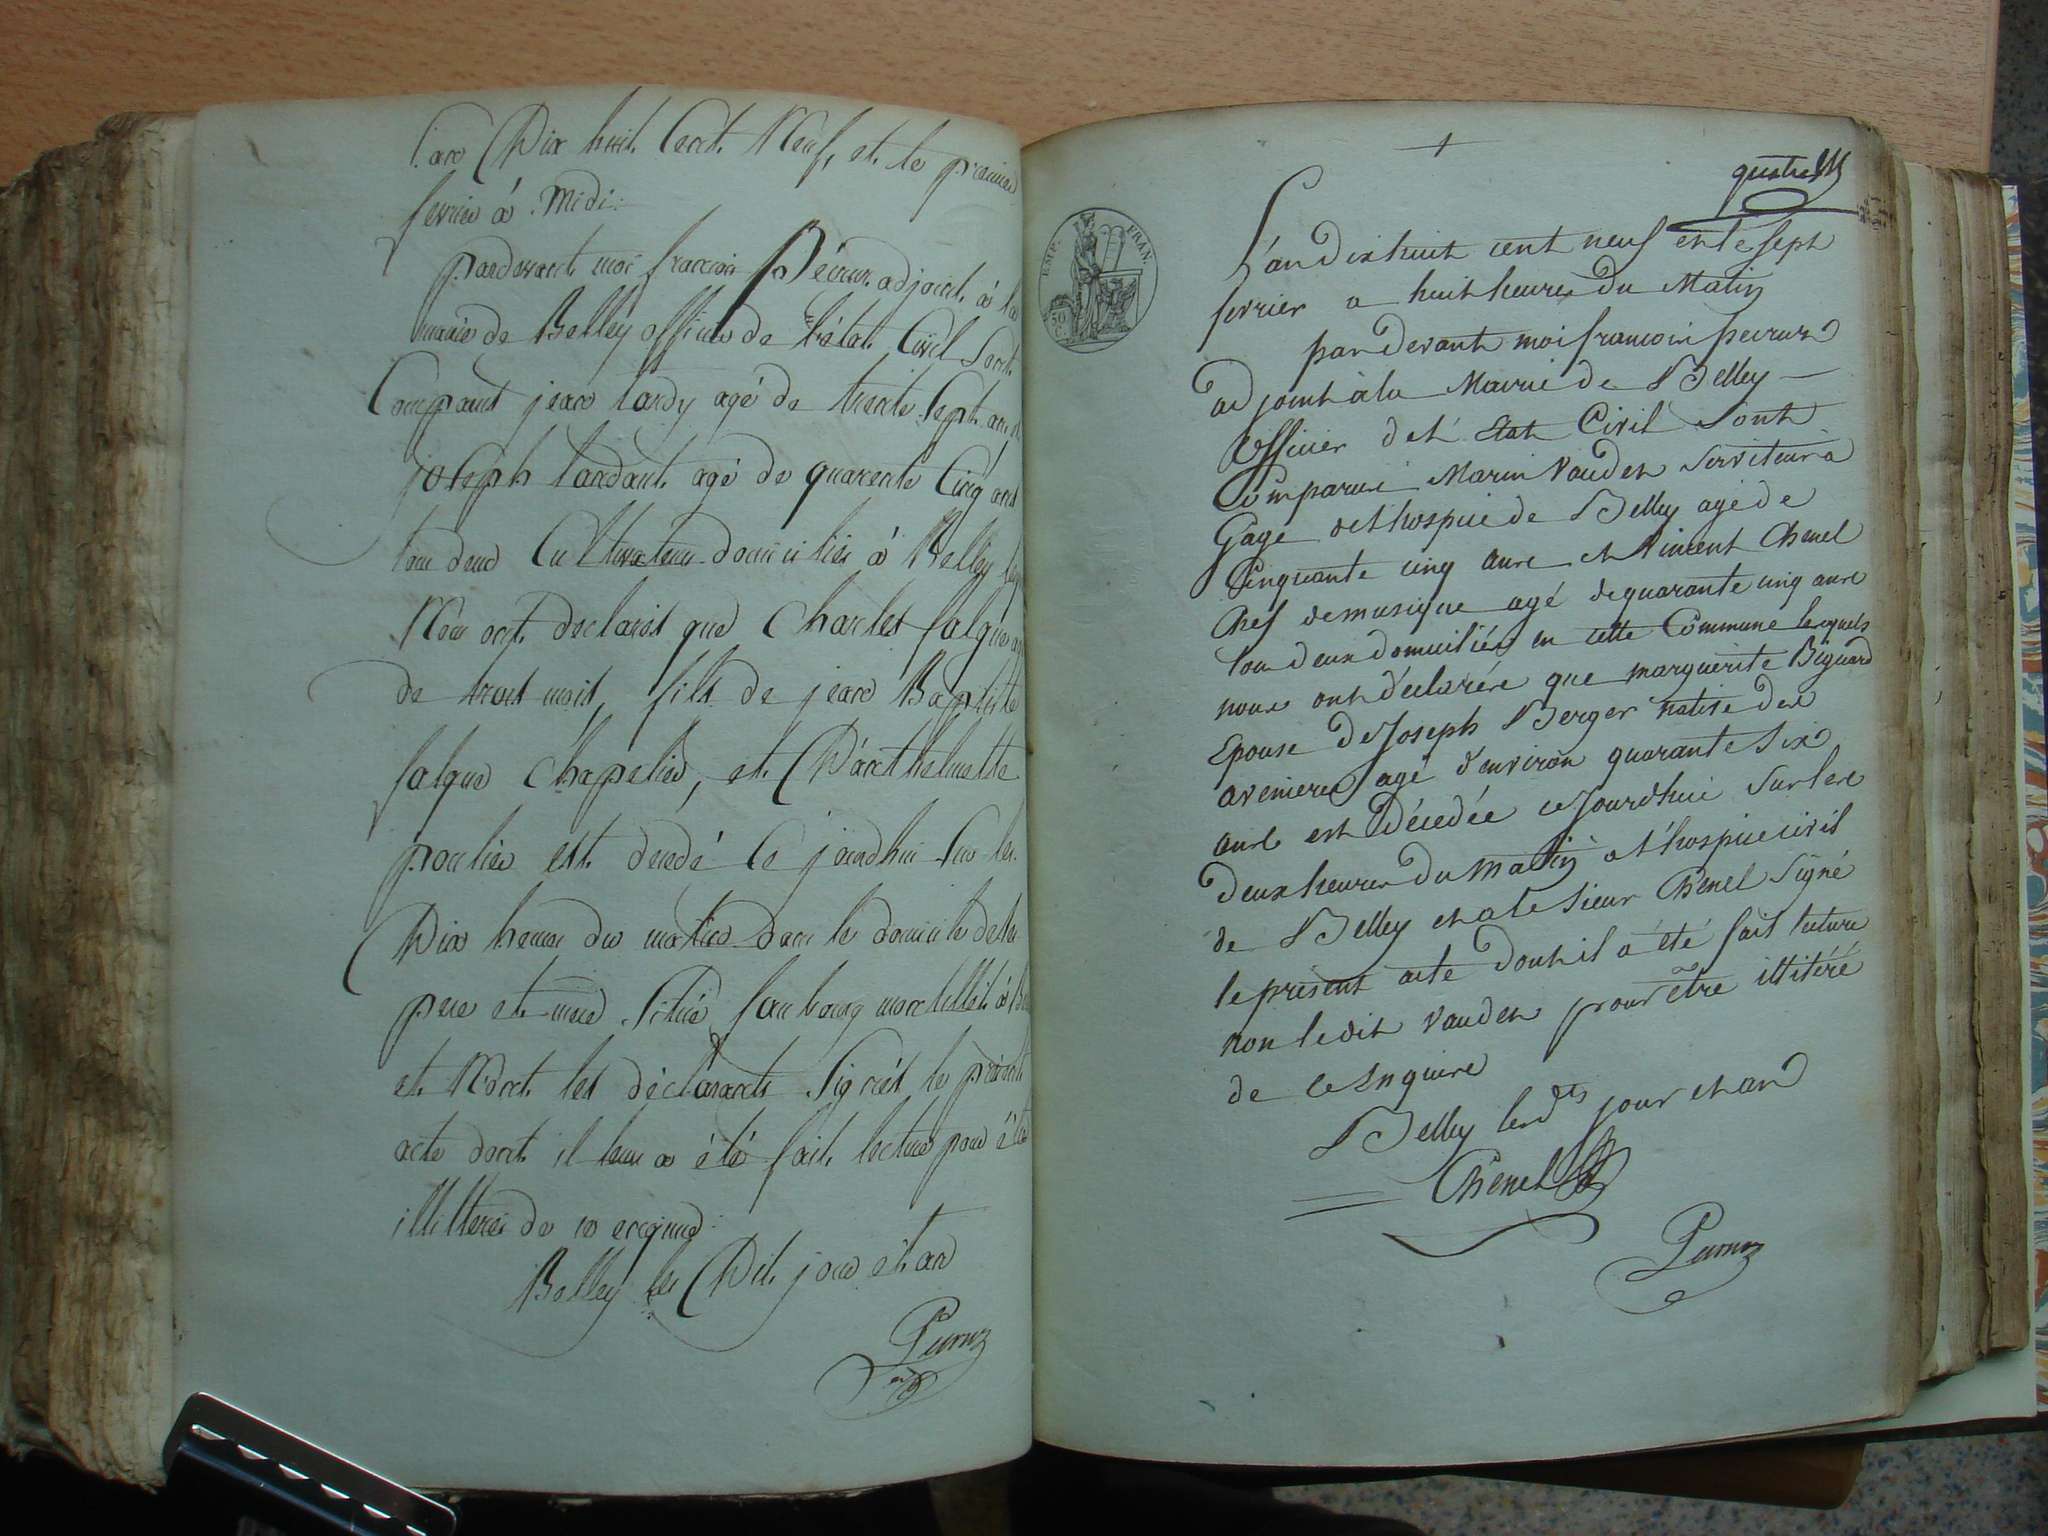 L'an Dix huit Cent Neuf, et le premier
fevrier à Midi
pardevant moi francois Pévraz adjoint à la
mairie de Belley officier de l'état Civil Sont
Comparus jean tardy agé de trente Sept ans et
joseph tardant agé de quarente Cinq ans
tous deux Cultivateurs domiciliés à Belley
Nous ont declarés que Charles falque
de trois mois, fils de jean Baptiste
falque Chapelier, et D'anthelmette
poulier est decedé Ce jourdhui Sur les
Dix heures du matin dans le domicile de Ses
pere et mere Situé faubourg
et N'ont les déclarants Signés le présent
acte dont il leur a été fait lecture pour être
illitterés de ce enquired
Belley les Dit jour et an
EMP. FRAN.
quatre
L'an Dix huit cent neuf et le sept
fevrier a huit heures du Matin
par devant moi francois
adjoint à la Mairie de Belley
Officier de l'état Civil Sont
Comparus Marin Vaudet Serviteur à
Gage de l'hospice de Belley agé de
Cinquante cinq ans et Vincent Chenel
Chef de musique agé de quarante cinq ans
tous deux domiciliés en cette Commune lesquels
nous ont déclarés que marguerite Biguard
Epouse de Joseph Berger native des
avenieres agé d'environ quarante Six
ans est Décedée ce Jourd'hui Sur les
deux heures du Matin a l'hospice civil
de Belley et a le Sieur Chenel Signé
le présent acte dont il a été fait lecture
non le dit Vaudet pour être illitéré
de ce Enquire
Belley les dts jour et an
Chenel